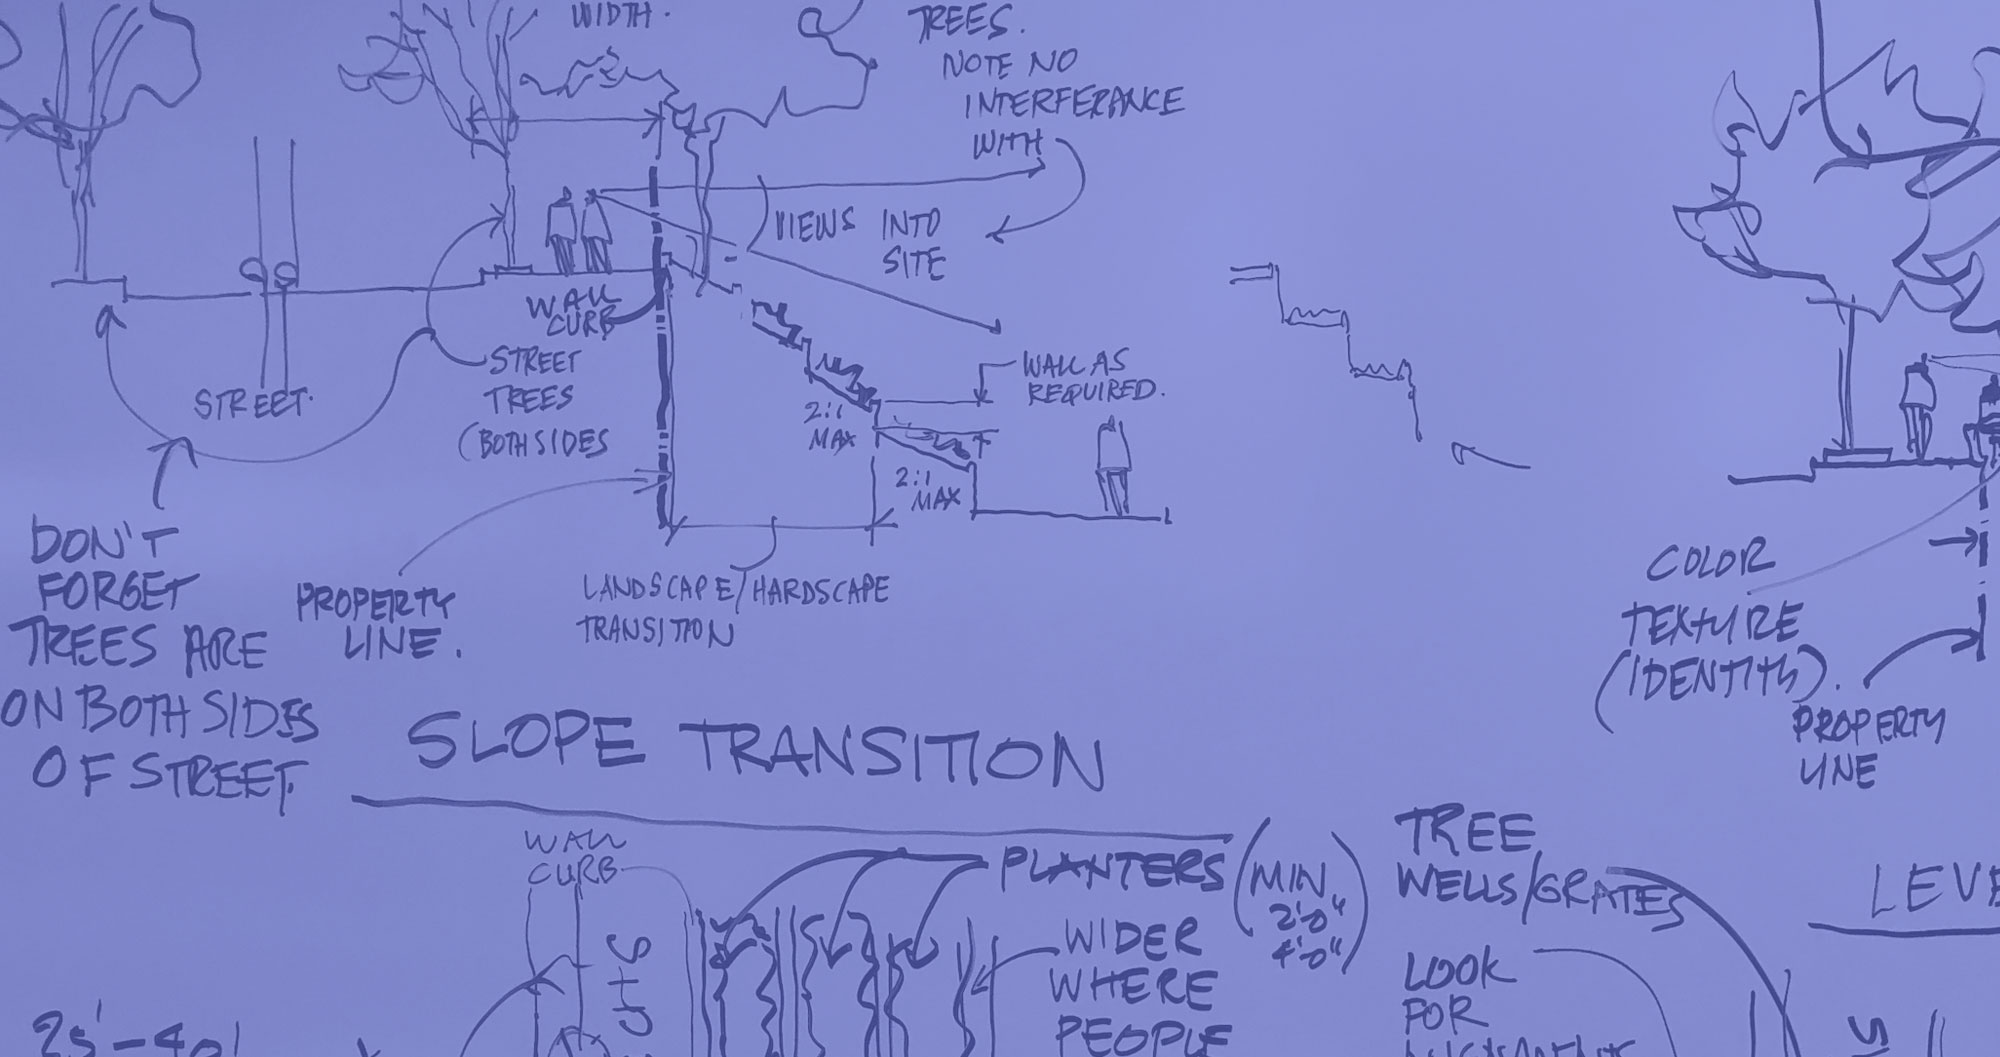 WIDTH.
TREES.
NOTE NO
INTERFERANCE
WITH
VIEWS INTO
SITE
WALL
CURB
STREET
TREES
(BOTH SIDES
STREET.
WALL AS
REQUIRED.
2:1
MAX
2:1
MAX
DON'T
FORGET
TREES ARE
ON BOTH SIDES
OF STREET.
PROPERTY
LINE.
LANDSCAPE/HARDSCAPE
TRANSITION
COLOR
TEXTURE
(IDENTITY).
PROPERTY
LINE
SLOPE TRANSITION
WALL
CURB
PLANTERS (MIN.
2'0"
4'0")
WIDER
WHERE
PEOPLE
TREE
WELLS/GRATES
LOOK
FOR
LEVE
25'-40'